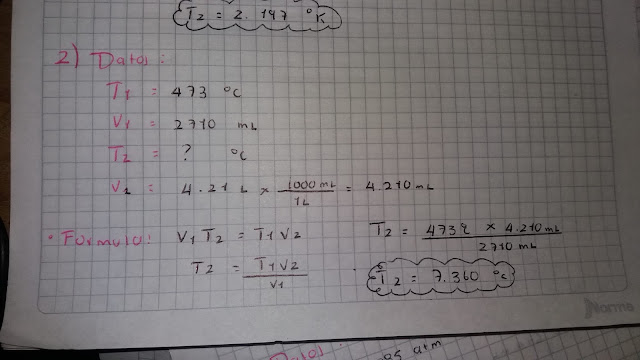 T2 = 2.197 °K
2) Datos:
T1 = 473 °C
V1 = 2710 mL
T2 = ? °C
V2 = 4.21 L x 1000 mL / 1L = 4.210 mL
• Fórmula: V1 T2 = T1 V2
T2 = T1 V2 / V1
T2 = 473 °C x 4.210 mL / 2710 mL
T2 = 7.360 °C
Norma
atm